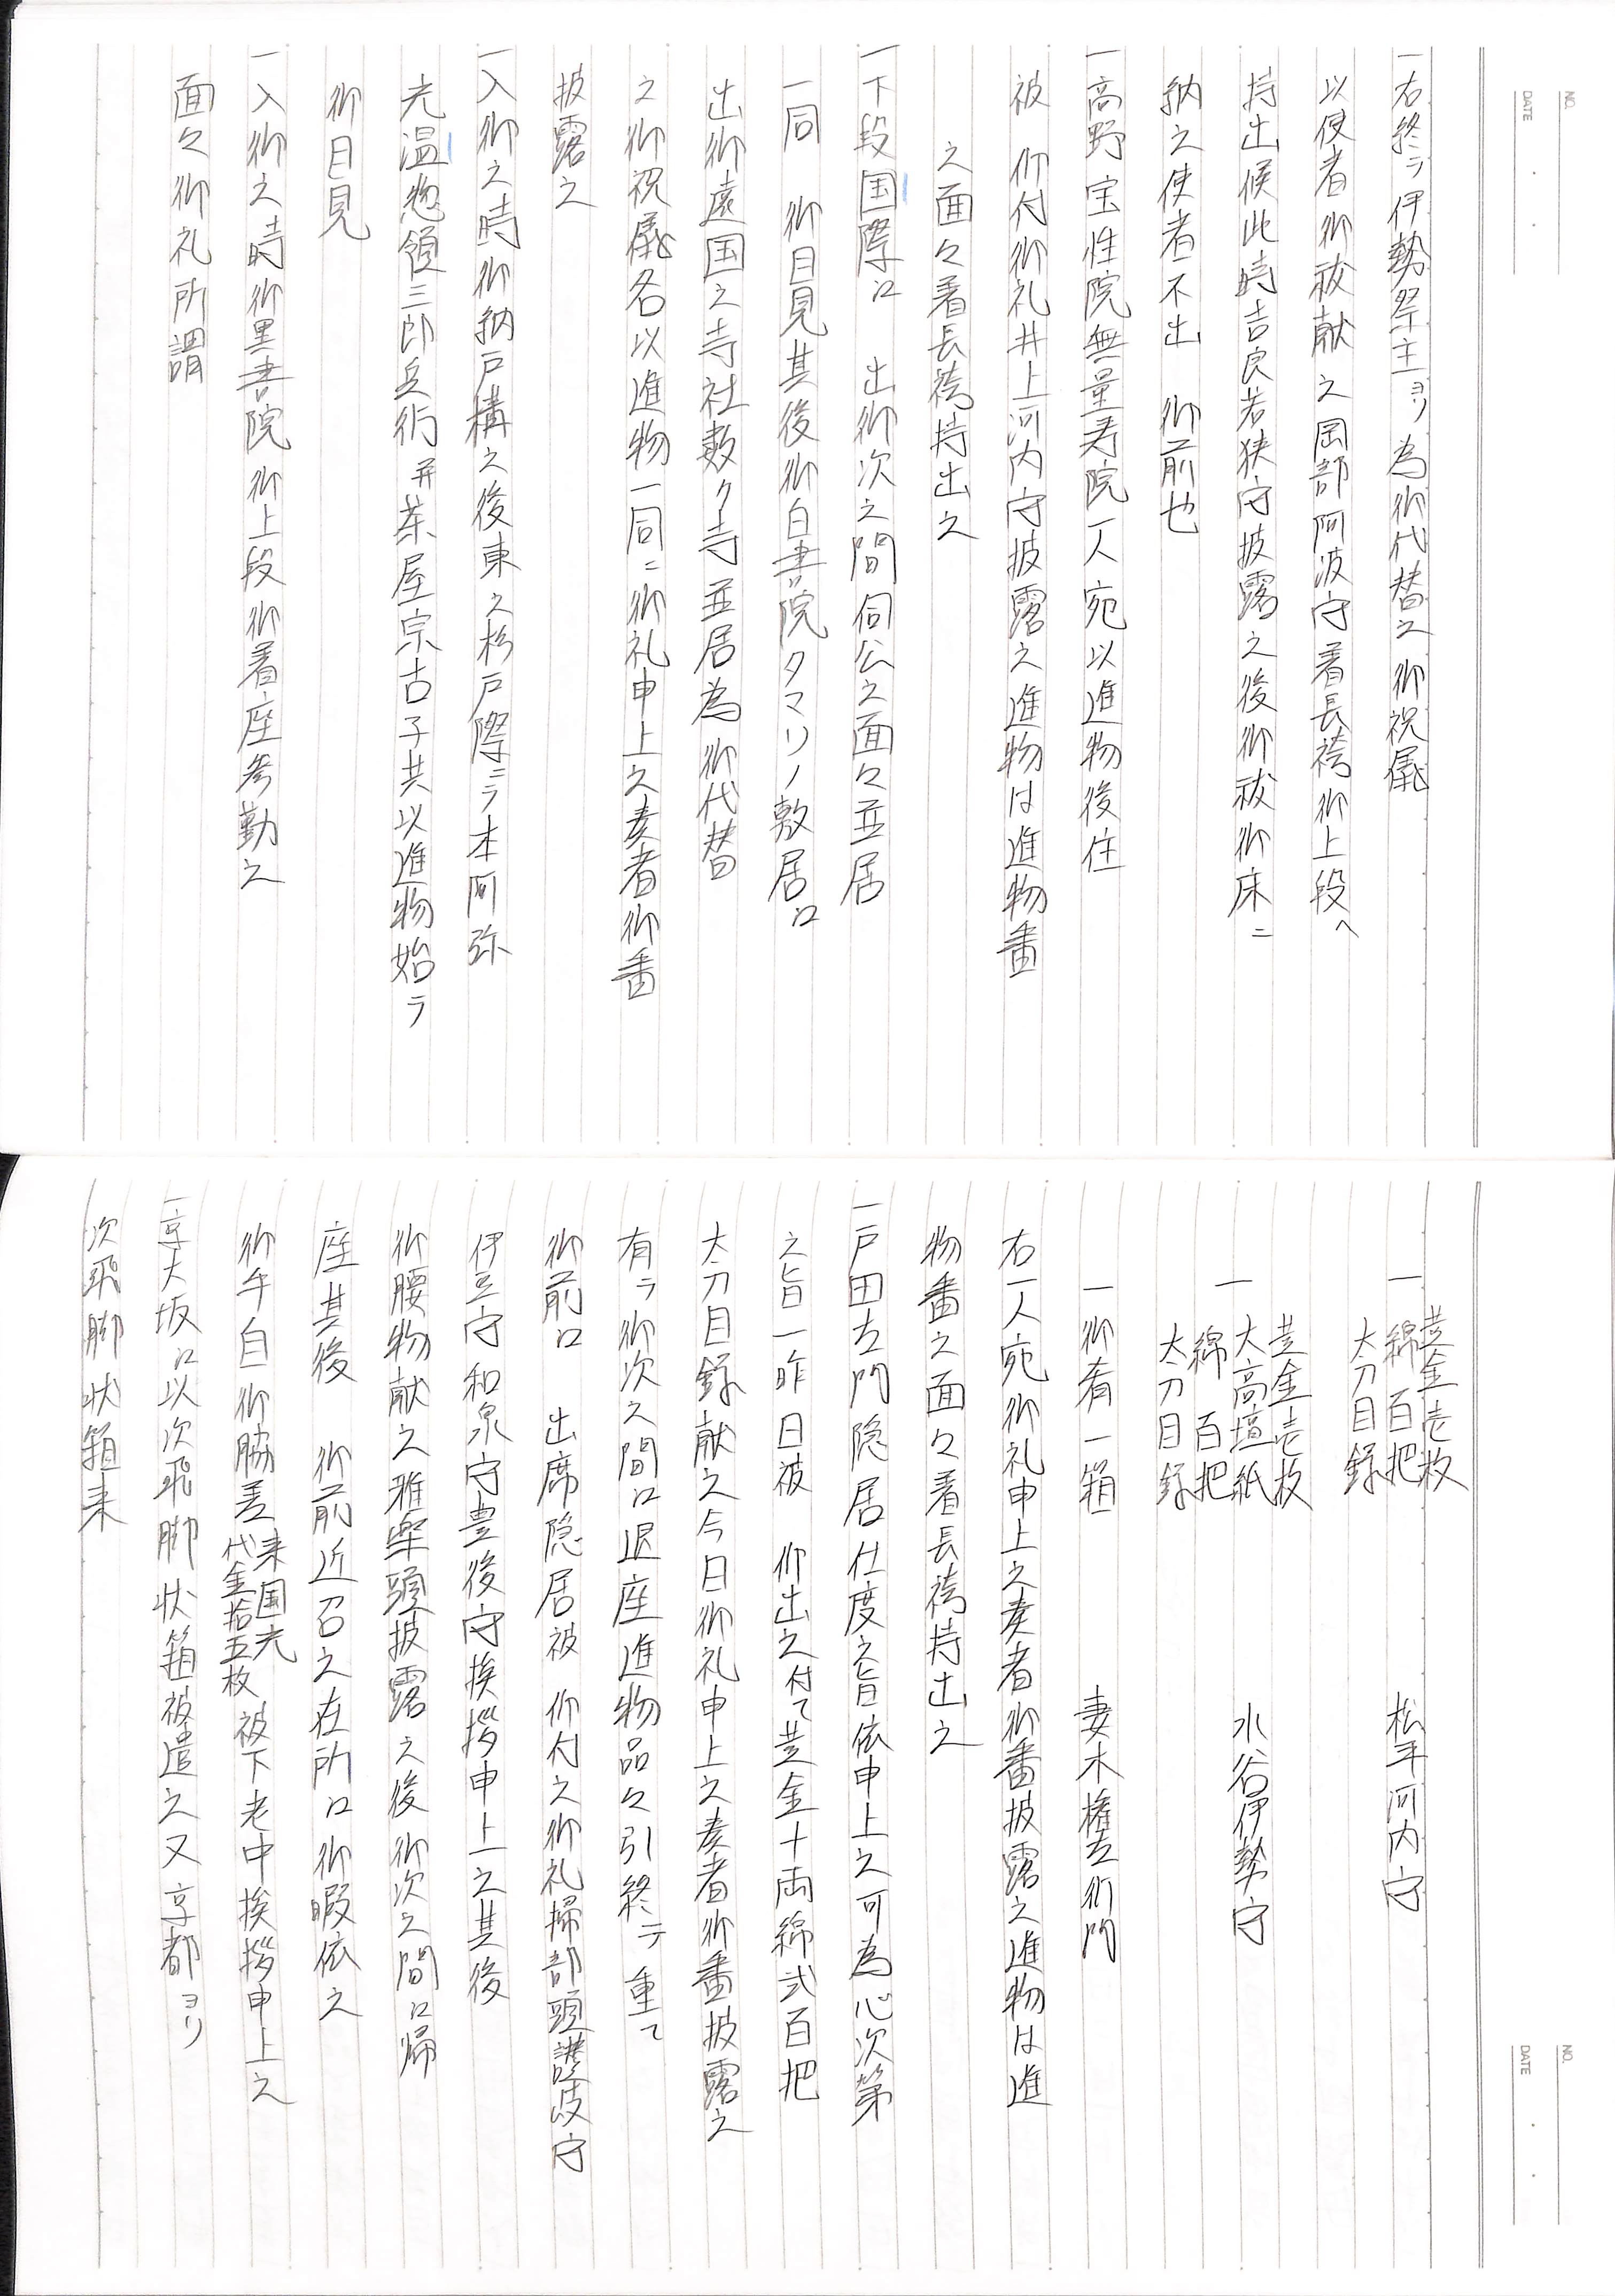 一右終テ伊勢祭主ヨリ為御代替之御祝儀
以使者御祓献之岡部阿波守着長袴御上段へ
持出候此時吉良若狭守披露之後御祓御床ニ
納之使者不出 御前也
一高野宝性院無量寿院一人宛以進物後住
被 仰付御礼井上河内守披露之進物は進物番
之面々着長袴持出之
一下段国際江 出御次之間伺公之面々並居
一同 御目見其後御白書院タマリノ敷居江
出御遠国之寺社数ケ寺並居為 御代替
之御祝儀各以進物一同ニ御礼申上之奏者御番
披露之
一入御之時御納戸構之後東之杉戸際ニテ本阿弥
光温惣領三郎兵衛并茶屋宗古子共以進物始テ
御目見
一入御之時御黒書院御上段御着座参勤之
面々御礼所謂
黄金壱枚
一 綿百把 松平河内守
太刀目録
黄金壱枚
一 大高壇紙 水谷伊勢守
綿百把
太刀目録
一御肴一箱 妻木権左衛門
右一人宛御礼申上之奏者御番披露之進物は進
物番之面々着長袴持出之
一戸田左門隠居仕度之旨依申上之可為心次第
之旨一昨日被 仰出之付て黄金十両綿弐百把
太刀目録献之今日御礼申上之奏者御番披露之
有テ御次之間江退座進物品々引終テ重て
御前江 出席隠居被 仰付之御礼掃部頭讃岐守
伊豆守和泉守豊後守挨拶申上之其後
御腰物献之雅楽頭披露之後御次之間江帰
座其後 御前近召之在所江御暇依之
御手自御脇差来国光代金拾五枚被下老中挨拶申上之
一京大坂江以次飛脚状箱被遣之又京都ヨリ
次飛脚状箱来
NO.
DATE
NO.
DATE